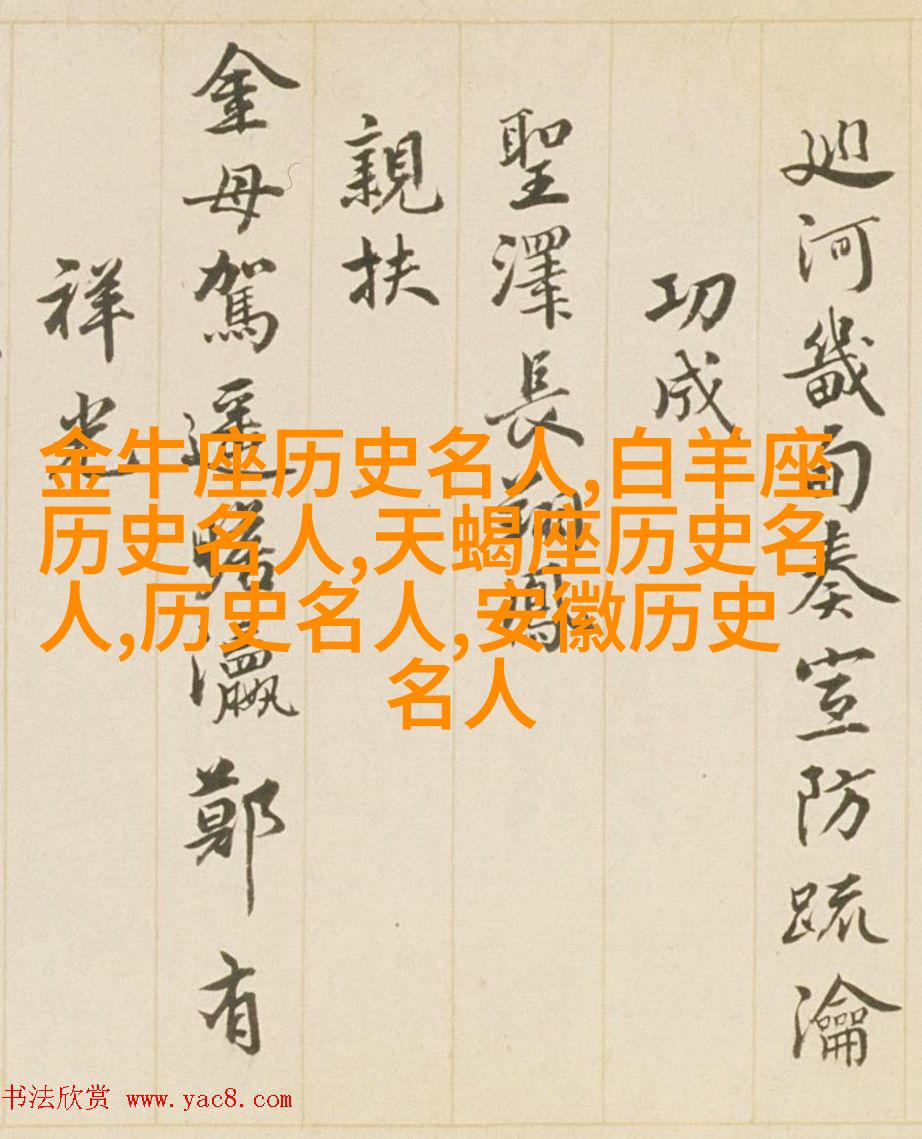 廵河畿而奏宣防疏瀹
功成
聖澤長
親扶
金母駕遥瞻瀛鄭有
祥光
金牛座历史名人,白羊座
历史名人,天蝎座历史名
人,历史名人,安徽历史
名人
书法欣赏 www.yac8.com